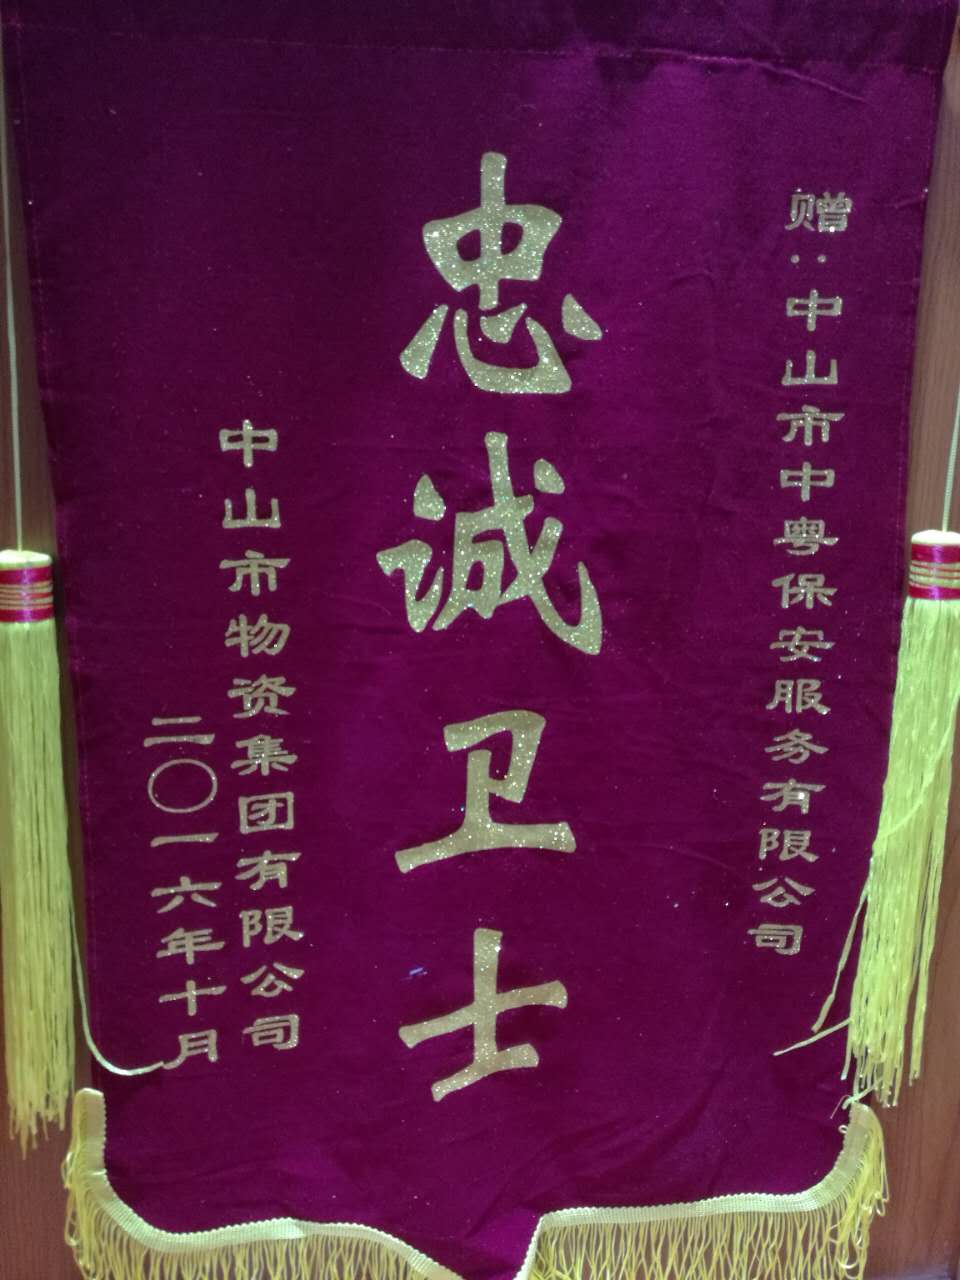 赠:中山市中粤保安服务有限公司
忠诚卫士
中山市物资集团有限公司
二〇一六年十月